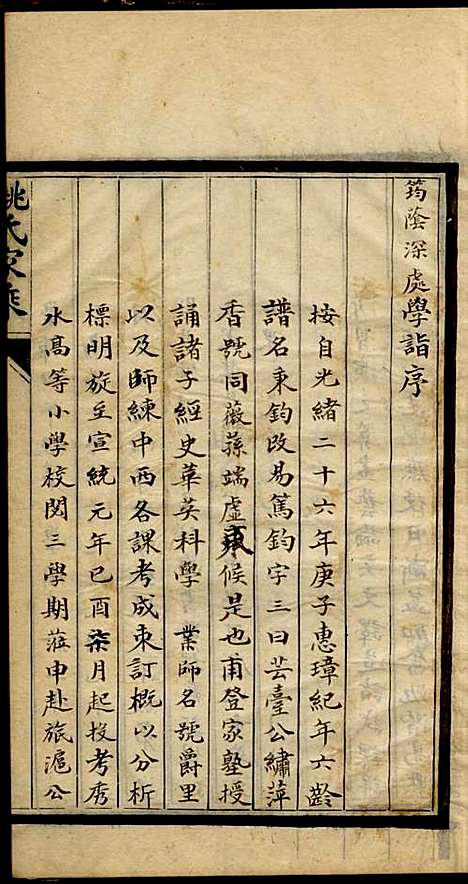 筠蔭深處學詣序
按自光緒二十六年庚子惠璋紀年六齡
譜名秉鈞改易篤鈞字三曰芸臺公繡萍
香號同薇蓀端虛候是也甫登家塾授
誦諸子經史華英科學　業師名號爵里
以及師練中西各課考成束訂概以分析
標明旋至宣統元年己酉柒月起投考秀
水高等小學校閱三學期蒞申赴旅滬公
姚氏家乘